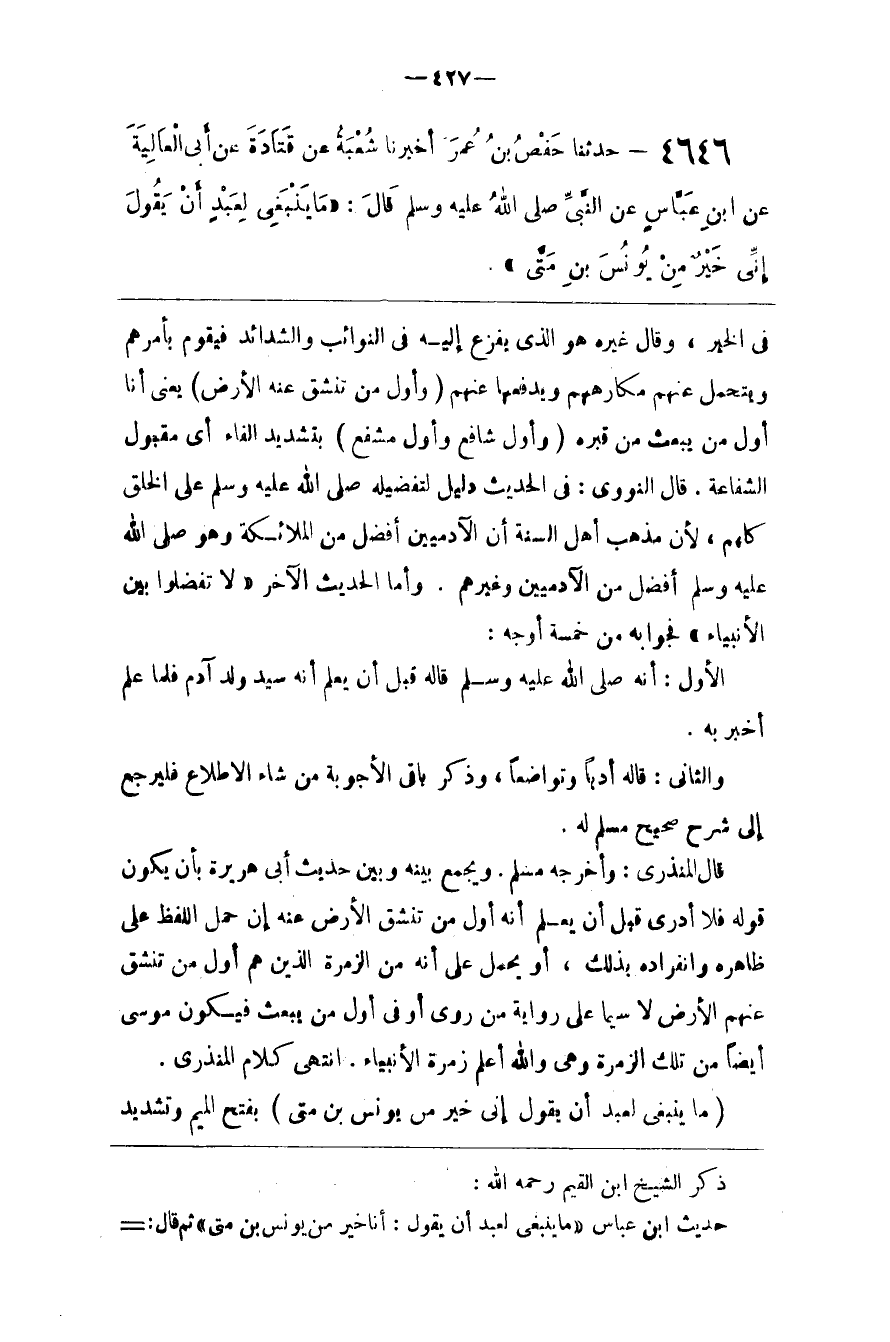 —٤٢٧—
٤٦٤٦ — حدثنا حَفْصُ بنُ عُمَرَ أخبرنا شُعْبَةُ عن قَتَادَةَ عن أَبى الْعَالِيَةَ
عن ابنِ عَبَّاسٍ عن النَّبِيِّ صلى اللهُ عليه وسلم قَالَ : «مَا يَنْبَغِى لِعَبْدٍ أَنْ يَقُولَ
إِنِّى خَيْرٌ مِنْ يُونُسَ بنِ مَتَّى » .
فى الخير ، وقال غيره هو الذى يفزع إليـه فى النوائب والشدائد فيقوم بأمرهم
ويتحمل عنهم مكارههم ويدفعها عنهم ( وأول من تنشق عنه الأرض) يعنى أنا
أول من يبعث من قبره ( وأول شافع وأول مشفع ) بتشديد الفاء أى مقبول
الشفاعة . قال النووى : فى الحديث دليل لتفضيله صلى الله عليه وسلم على الخلق
كلهم ، لأن مذهب أهل السنة أن الآدميين أفضل من الملائـكة وهو صلى الله
عليه وسلم أفضل من الآدميين وغيرهم . وأما الحديث الآخر « لا تفضلوا بين
الأنبياء » فجوابه من خمسة أوجه :
الأول : أنه صلى الله عليه وسـلم قاله قبل أن يعلم أنه سيد ولد آدم فلما علم
أخبر به .
والثانى : قاله أدباً وتواضعاً ، وذكر باقى الأجوبة من شاء الاطلاع فليرجع
إلى شرح صحيح مسلم له .
قال المنذرى : وأخرجه مسلم . ويجمع بينه وبين حديث أبى هريرة بأن يكون
قوله فلا أدرى قبل أن يعـلم أنه أول من تنشق الأرض عنه إن حمل اللفظ على
ظاهره وانفراده بذلك ، أو يحمل على أنه من الزمرة الذين هم أول من تنشق
عنهم الأرض لا سيما على رواية من روى أو فى أول من يبعث فيـكون موسى
أيضاً من تلك الزمرة وهى والله أعلم زمرة الأنبياء . انتهى كـلام المنذرى .
( ما ينبغى لعبد أن يقول إنى خير من يونس بن متى ) بفتح الميم وتشديد
ذكر الشيخ ابن القيم رحمه الله :
حديث ابن عباس «ما ينبغى لعبد أن يقول : أنا خير من يونس بن متى» ثم قال : =